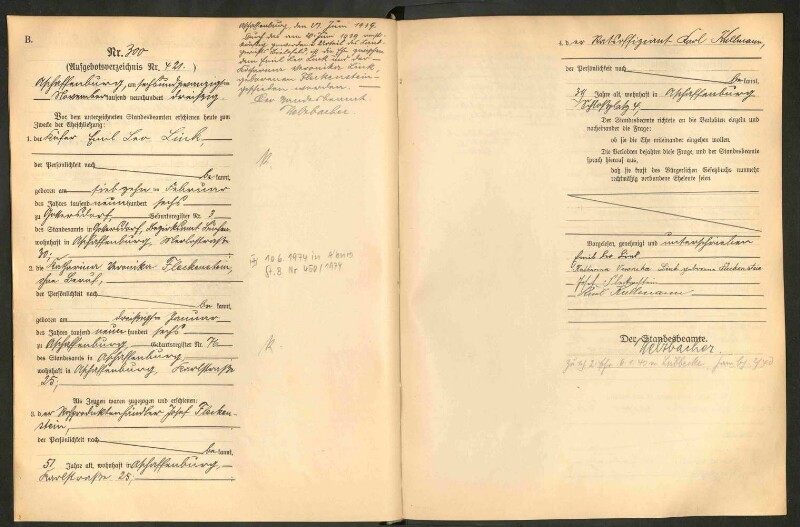 B.
Nr. 300
(Aufgebotsverzeichnis Nr. 421.)
Aschaffenburg, am sechsundzwanzigsten
November tausend neunhundert dreißig.
Vor dem unterzeichneten Standesbeamten erschienen heute zum
Zwecke der Eheschließung:
1. der Küfer Emil Leo Link,
der Persönlichkeit nach
be kannt,
geboren am siebzehn = Februar
des Jahres tausend neunhundert sechs
zu Goversdorf, Geburtsregister Nr. 3
des Standesamts in Goversdorf, Bezirksamt
wohnhaft in Aschaffenburg, Merlostraße
30;
2. die Katharina Veronika Fleckenstein,
ohne Beruf,
der Persönlichkeit nach
be kannt,
geboren am dreißigste Januar
des Jahres tausend neun hundert sechs
zu Aschaffenburg, Geburtsregister Nr. 76
des Standesamts in Aschaffenburg,
wohnhaft in Aschaffenburg, Karlstraße
25;
Als Zeugen waren zugezogen und erschienen:
3. der Rohproduktenhändler Josef Flecken-
stein,
der Persönlichkeit nach
be kannt,
51 Jahre alt, wohnhaft in Aschaffenburg,
Karlstraße 25;
Aschaffenburg, den 17. Juni 1939.
Durch das am 10. Juni 1939
gewordene Urteil des Land-
gerichts ist die Ehe zwischen
dem Emil Leo Link und der
Katharina Veronika Link,
geborenen Fleckenstein
geschieden worden.
Der Standesbeamte.
Welzbacher
10.6.1974 in A'burg
St. B. Nr 450/1974
4. der Karl Kullmann,
der Persönlichkeit nach
be kannt,
39 Jahre alt, wohnhaft in Aschaffenburg
Schloßplatz 4,
Der Standesbeamte richtete an die Verlobten einzeln und
nacheinander die Frage:
ob sie die Ehe miteinander eingehen wollen.
Die Verlobten bejahten diese Frage, und der Standesbeamte
sprach hierauf aus,
daß sie kraft des Bürgerlichen Gesetzbuchs nunmehr
rechtmäßig verbundene Eheleute seien.
Vorgelesen, genehmigt und unterschrieben
Emil Leo Link
Katharina Veronika Link geborene Fleckenstein
Josef Fleckenstein
Karl Kullmann
Der Standesbeamte.
Welzbacher.